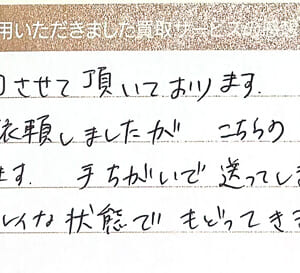 用いただきました買取サービスの
させて頂いております.
依頼しましたが こちらの
ます. 手ちがいで 送ってし
レイな状態で もどってき